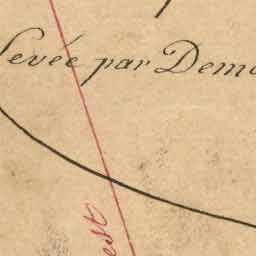 Levée par Dem
est